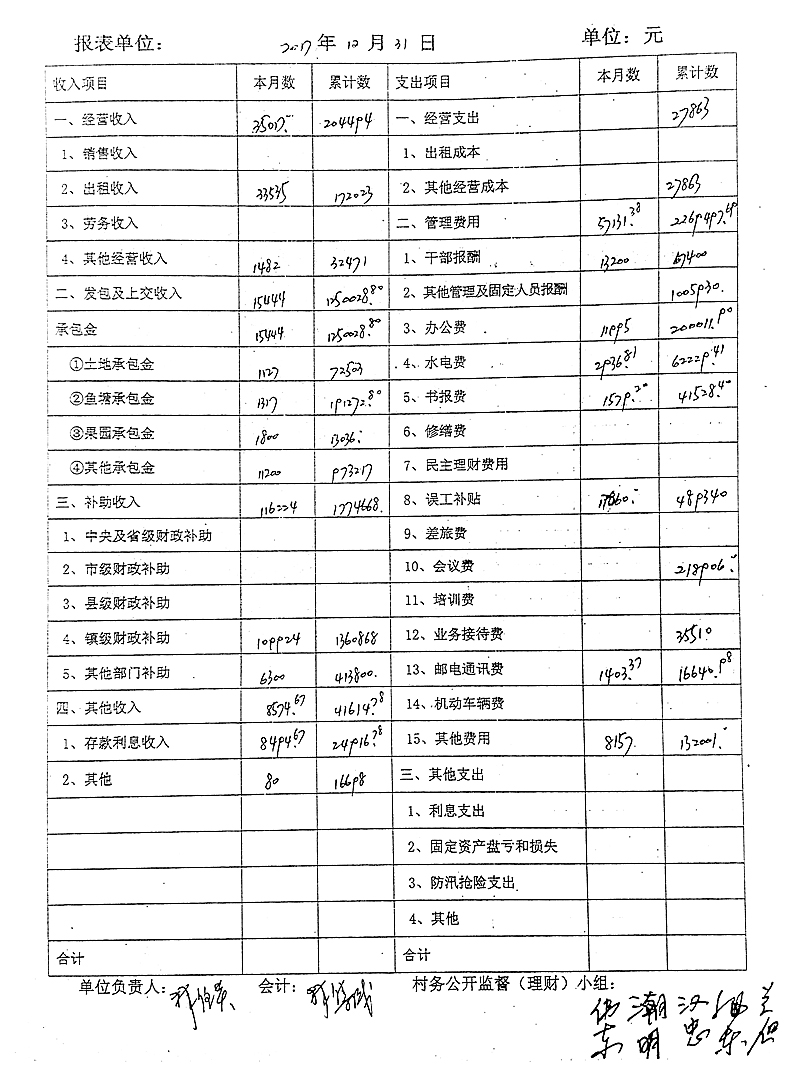 报表单位： 2017年12月31日 单位：元
收入项目 本月数 累计数 支出项目 本月数 累计数
一、经营收入 35017. 204494 一、经营支出 27863
1、销售收入 1、出租成本
2、出租收入 23535 172023 2、其他经营成本 27863
3、劳务收入 二、管理费用 57131.38 2269497.69
4、其他经营收入 1482 32471 1、干部报酬 13200 67400
二、发包及上交收入 15444 1250028.80 2、其他管理及固定人员报酬 1005930.
承包金 15444 1250028.80 3、办公费 11995 200011.90
①土地承包金 1127 72503 4、水电费 2936.81 62229.41
②鱼塘承包金 1317 191272.80 5、书报费 1579.20 41528.40
③果园承包金 1800 13036. 6、修缮费
④其他承包金 11200 973217 7、民主理财费用
三、补助收入 116224 1774668. 8、误工补贴 17860. 489340
1、中央及省级财政补助 9、差旅费
2、市级财政补助 10、会议费 218906.
3、县级财政补助 11、培训费
4、镇级财政补助 109924 1360868 12、业务接待费 35510
5、其他部门补助 6300 413800. 13、邮电通讯费 1403.37 16640.98
四、其他收入 8574.67 41614.78 14、机动车辆费
1、存款利息收入 8494.67 24916.78 15、其他费用 8157. 132001.
2、其他 80 16698 三、其他支出
1、利息支出
2、固定资产盘亏和损失
3、防汛抢险支出
4、其他
合计 合计
单位负责人： 会计： 村务公开监督（理财）小组：
潮 汉
东 明 忠